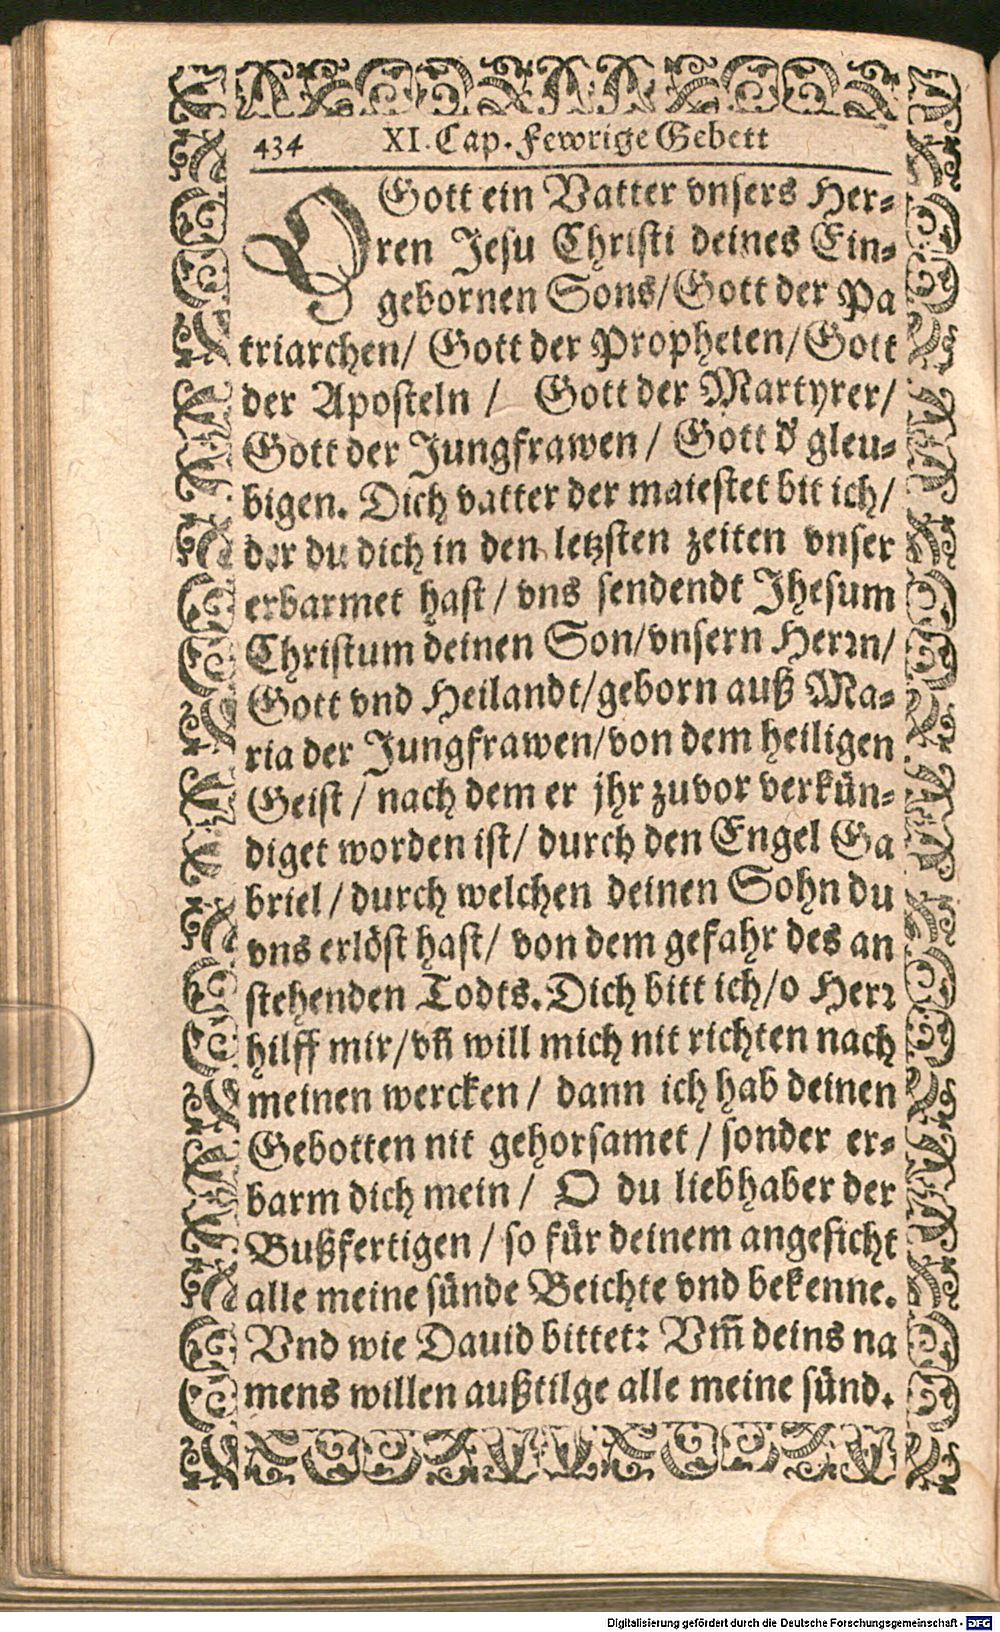 434 XI. Cap. Fewrige Gebett
O Gott ein Vatter vnsers Her-
ren Jesu Christi deines Ein-
gebornen Sons/Gott der Pa
triarchen/ Gott der Propheten/Gott
der Aposteln / Gott der Martyrer/
Gott der Jungfrawen / Gott d' gleu-
bigen. Dich vatter der maiestet bit ich/
der du dich in den letzsten zeiten vnser
erbarmet hast / vns sendendt Jhesum
Christum deinen Son/vnsern Herꝛn/
Gott vnd Heilandt/geborn auß Ma-
ria der Jungfrawen/von dem heiligen
Geist / nach dem er jhr zuvor verkün-
diget worden ist/ durch den Engel Ga
briel / durch welchen deinen Sohn du
vns erlöst hast/ von dem gefahr des an
stehenden Todts. Dich bitt ich/o Herꝛ
hilff mir/vñ will mich nit richten nach
meinen wercken / dann ich hab deinen
Gebotten nit gehorsamet / sonder er-
barm dich mein / O du liebhaber der
Bußfertigen / so für deinem angesicht
alle meine sünde Beichte vnd bekenne.
Vnd wie Dauid bittet: Vm̃ deins na
mens willen außtilge alle meine sünd.
Digitalisierung gefördert durch die Deutsche Forschungsgemeinschaft - DFG